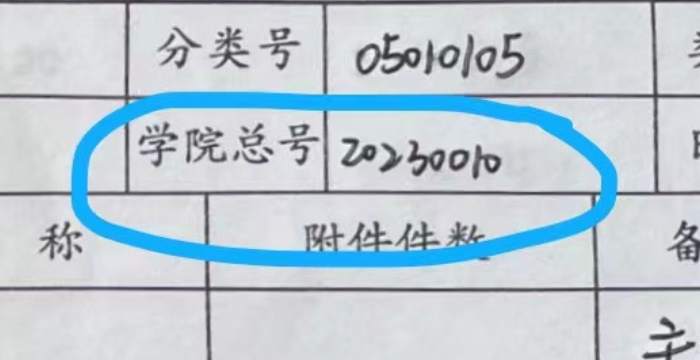 分类号 05010105
学院总号 20230010
称 附件件数 备
主